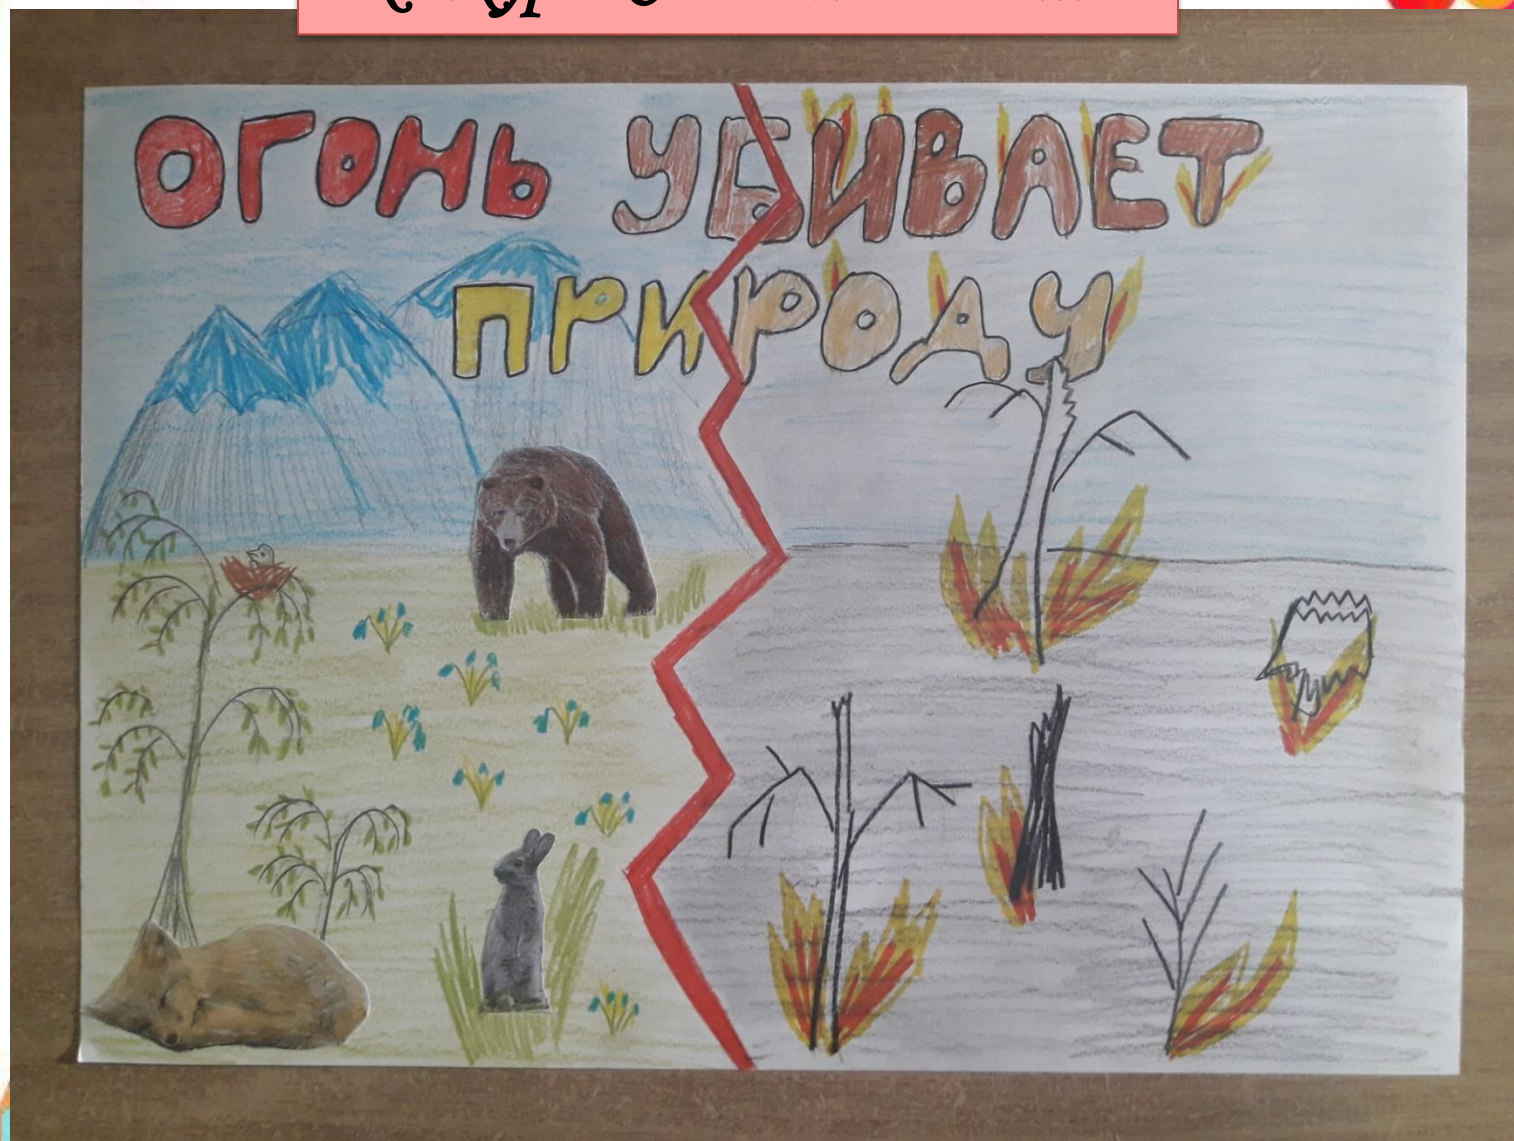 ОГОНЬ УБИВАЕТ
ПРИРОДУ